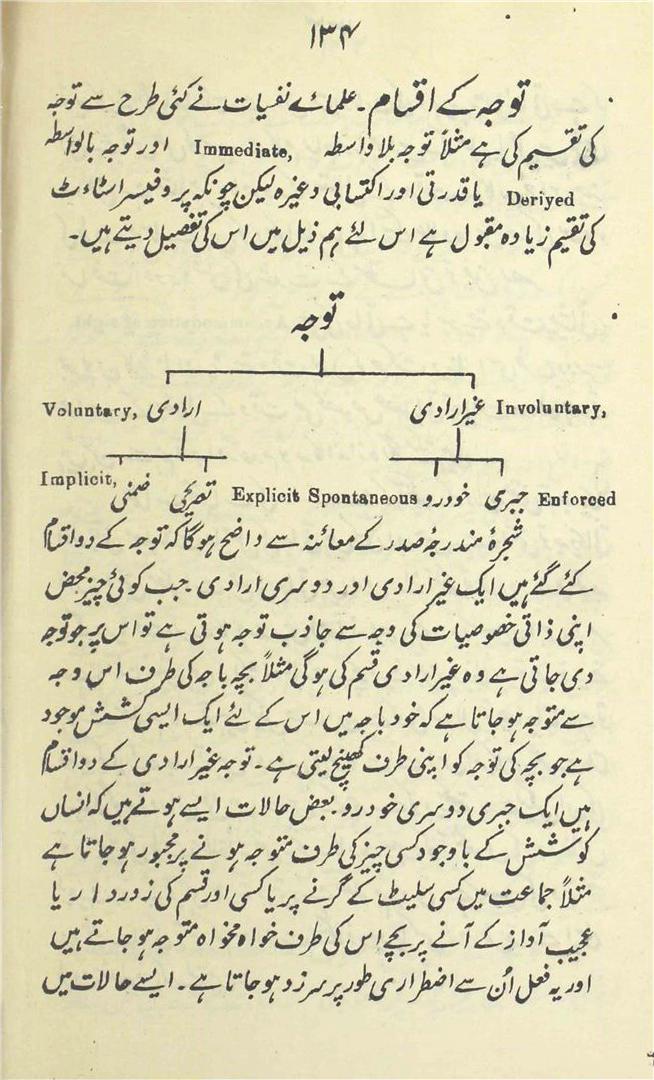 ۱۳۴
توجہ کے اقسام۔ علمائے نفسیات نے کئی طرح سے توجہ
کی تقسیم کی ہے مثلاً توجہ بلا واسطہ Immediate, اور توجہ بالواسطہ
Deriyed یا قدرتی اور اکتسابی وغیرہ لیکن چونکہ پروفیسر اسٹاءٹ
کی تقیم زیادہ مقبول ہے اس لئے ہم ذیل میں اس کی تفصیل دیتے ہیں۔
توجہ
Involuntary, غیر ارادی Voluntary, ارادی
Enforced جبری Spontaneous خودرو Explicit تصریحی Implicit, ضمنی
شجرۂ مندرجۂ صدر کے معائنہ سے واضح ہوگا کہ توجہ کے دو اقسام
کئے گئے ہیں ایک غیر ارادی اور دوسری ارادی۔ جب کوئی چیز محض
اپنی ذاتی خصوصیات کی وجہ سے جاذب توجہ ہوتی ہے تو اس پر جو توجہ
دی جاتی ہے وہ غیر ارادی قسم کی ہوگی مثلاً بچہ باجہ کی طرف اس وجہ
سے متوجہ ہو جاتا ہے کہ خود باجہ میں اس کے لئے ایک ایسی کشش موجود
ہے جو بچہ کی توجہ کو اپنی طرف کھینچ لیتی ہے۔ توجہ غیر ارادی کے دو اقسام
ہیں ایک جبری دوسری خودرو۔ بعض حالات ایسے ہوتے ہیں کہ انساں
کوشش کے باوجود کسی چیز کی طرف متوجہ ہونے پر مجبور ہو جاتا ہے
مثلاً جماعت میں کسی سلیٹ کے گرنے پر یا کسی اور قسم کی زوردار یا
عجیب آواز کے آنے پر بچے اس کی طرف خواہ مخواہ متوجہ ہو جاتے ہیں
اور یہ فعل اُن سے اضطراری طور پر سرزد ہو جاتا ہے۔ ایسے حالات میں